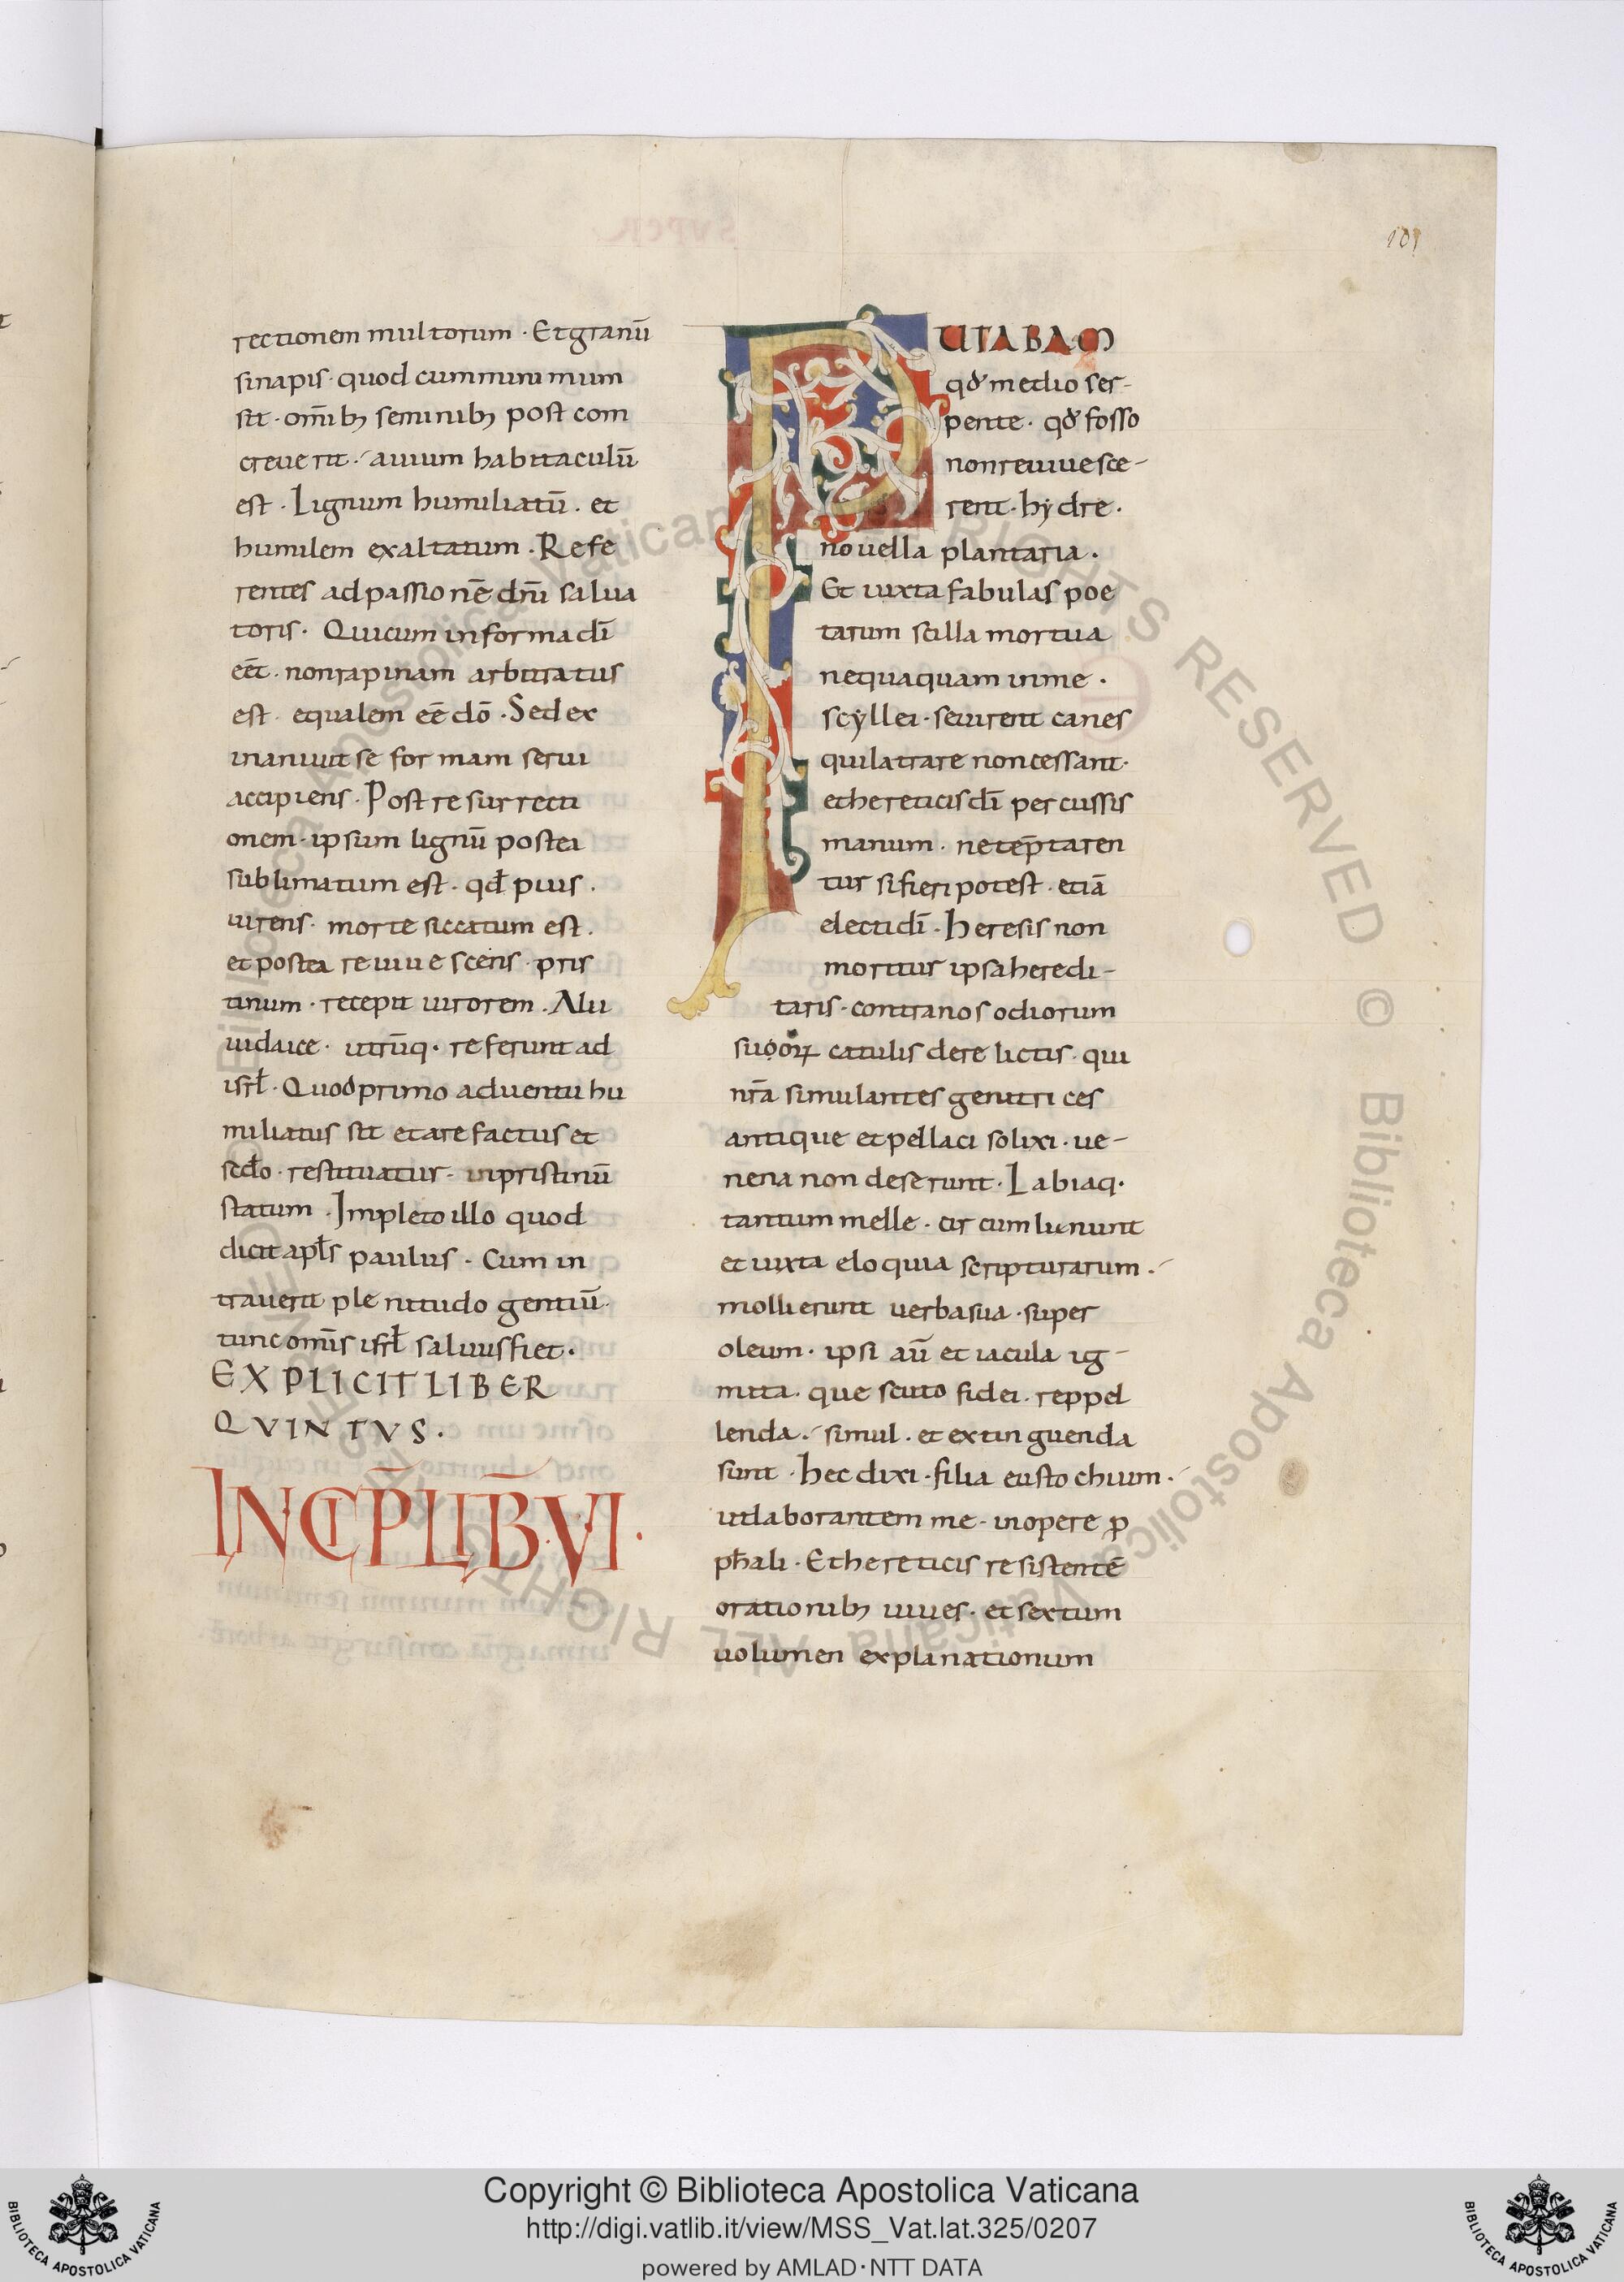 101
rectionem multorum · Et granū
sinapis · quod cum minimum
sit · om̄ibȝ seminibȝ post com
creuerit · auium habitaculū
est · Lignum humiliatū · et
humilem exaltatum · Refe
rentes ad passionē dn̄i salua
toris · Qui cum in forma di̅
eēt · non rapinam arbitratus
est · equalem eē dō · Sed ex
inaniuit se formam serui
accipiens · Post resurrecti
onem · ipsum lignū postea
sublimatum est · qđ prius ·
uirens · morte siccatum est ·
et postea reuiuescens · pris
tinum · recepit uirorem · Alii
iudaice · utrūq· referunt ad
isrł · Quod primo aduentu hu
miliatus sit et arefactus et
scđo · restituatur · in pristinū
statum · Impleto illo quod
dicit apłs paulus · Cum in
trauerit plenitudo gentiū ·
tunc omīs isrł saluus fiet ·
EXPLICIT LIBER
QVINTVS ·
INCIP̄ LIB̄ · VI ·
PUTABAM
qđ medio ser-
pente · qđ fosso
non reuiuesce-
rent · hydre ·
nouella plantaria ·
Et iuxta fabulas poe
tarum scilla mortua
nequaquam in me ·
scyllei · seuirent canes
qui latrare non cessant ·
et hereticis di̅ percussis
manum · ne tēptaren
tur si fieri potest · etiā
electi di̅ · Heresis non
moritur ipsa heredi-
taris · contra nos odiorum
suoꝝ catulis derelictis · qui
nr̄a simulantes genitrices
antique et pellaci solixi · ue-
nena non deserunt · Labiaq·
tantum melle · circumlinunt
et iuxta eloquia scripturarum ·
mollierunt uerba sua · super
oleum · ipsi aū et iacula ig-
nita · que scuto fidei · reppel
lenda · simul · et extinguenda
sunt · Hec dixi · filia eustochium ·
ut laborantem me · in opere ꝓ
pħali · Et hereticis resistentē
orationibȝ iuues · et sextum
uolumen explanationum
Copyright © Biblioteca Apostolica Vaticana
http://digi.vatlib.it/view/MSS_Vat.lat.325/0207
powered by AMLAD · NTT DATA
BIBLIOTECA APOSTOLICA VATICANA
BIBLIOTECA APOSTOLICA VATICANA